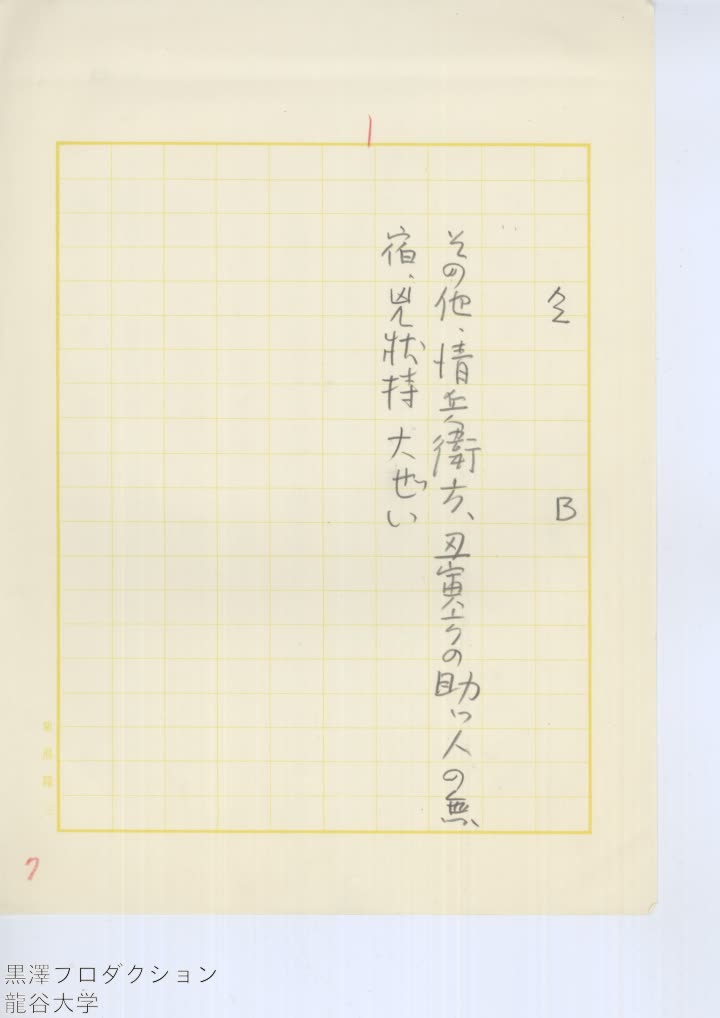 1
B
その他、清兵衛方、丑寅方の助っ人の無
宿、兇状持大ぜい
7
黒澤プロダクション
龍谷大学